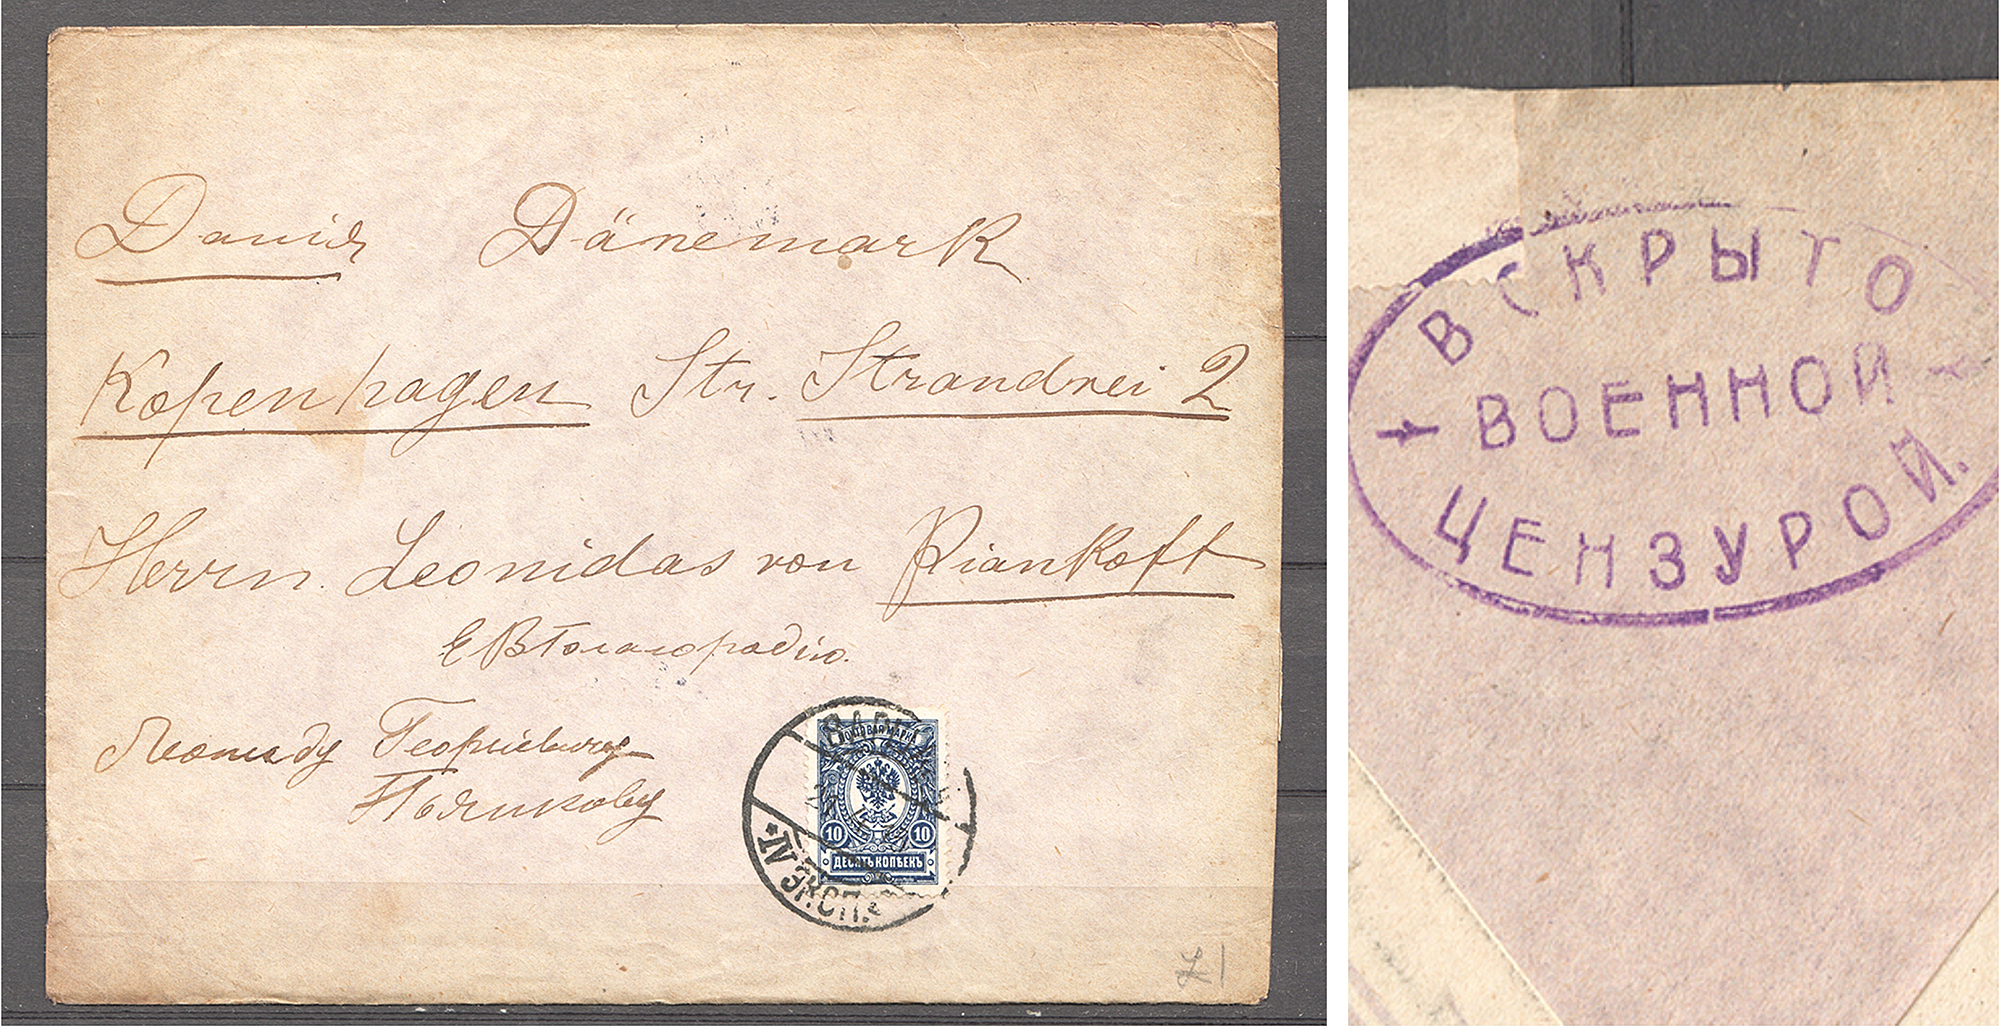 Данія Dänemark
Kopenhagen Str. Strandvei 2
Herrn. Leonidas von Piankoff
Е В Благородію.
Леониду Георгіевичу
Пьянкову
ПОЧТОВАЯ МАРКА
10 10
ДЕСЯТЬ КОПѢЕКЪ
*IV ЭКСП.*
ВСКРЫТО
ВОЕННОЙ
ЦЕНЗУРОЙ.